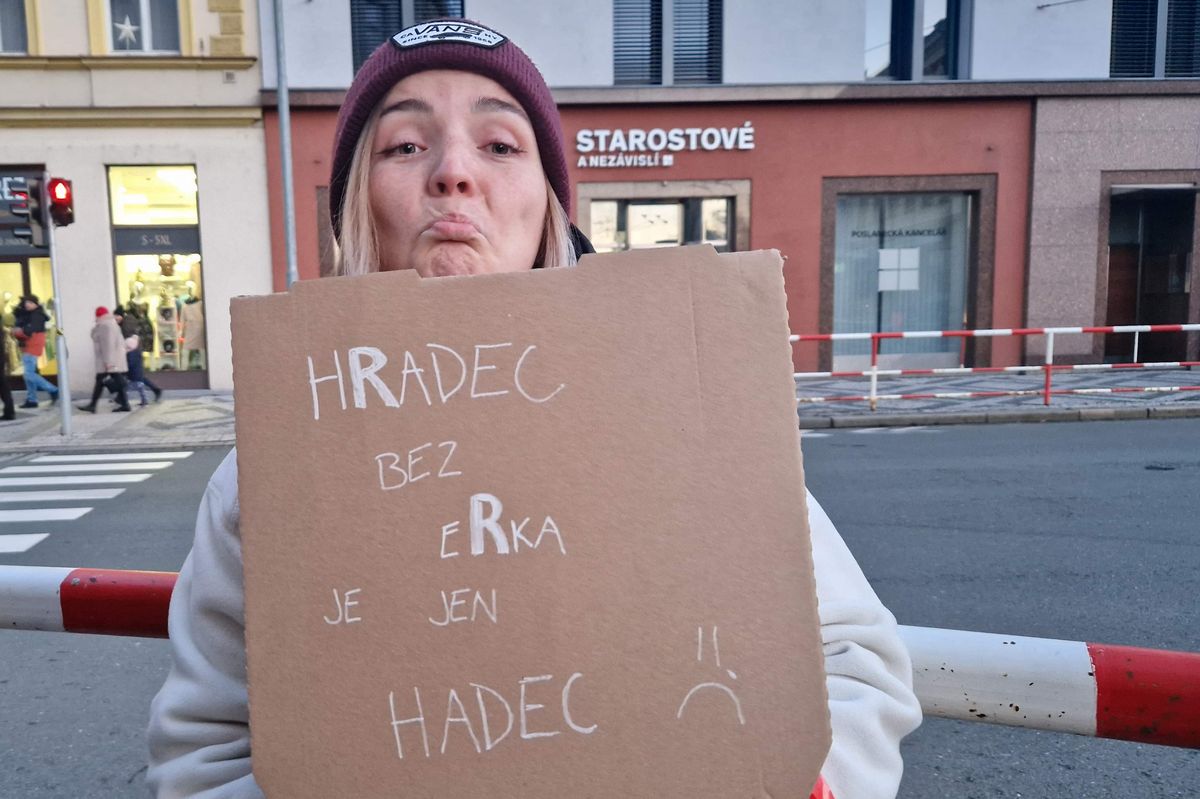 VANS
STAROSTOVÉ
A NEZÁVISLÍ
POSLANECKÁ KANCELÁŘ
S - 5XL
HRADEC
BEZ
eRKA
JE JEN
HADEC